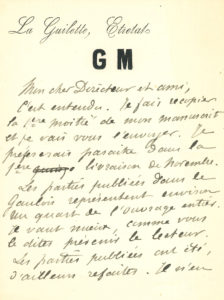 La Guillette, Etretat.
G M
Mon cher Directeur et ami,
C'est entendu. Je fais recopier
la 1ère moitié de mon manuscrit
et je vais vous l'envoyer. Je
préférerais paraître dans la
1ère livraison de Novembre.
Les parties publiées dans le
Gaulois représentent environ
un quart de l'ouvrage entier.
Il vaut mieux, comme vous
le dites prévenir le lecteur.
Les parties publiées ont été,
d'ailleurs refaites. Il n'en